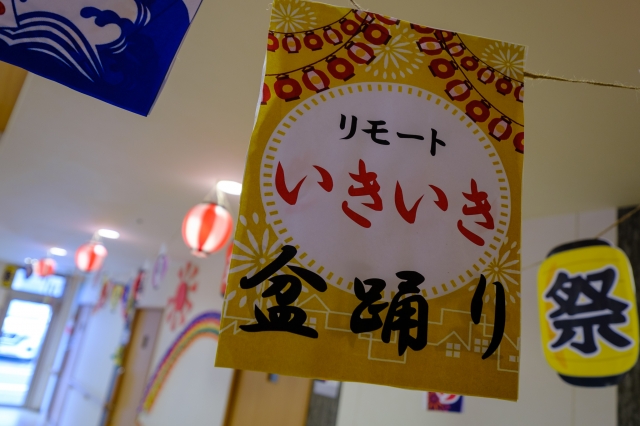 リモート
いきいき
盆踊り
祭